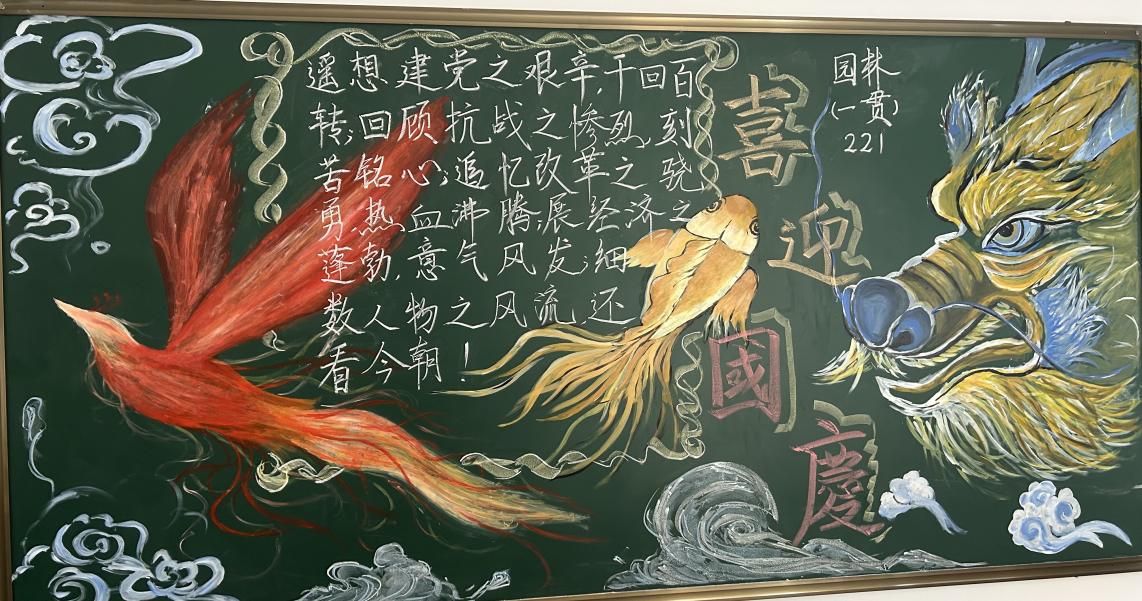 遥想建党之艰辛,千回百
转;回顾抗战之惨烈,刻
苦铭心;追忆改革之骁
勇,热血沸腾;展经济之
蓬勃,意气风发;细
数人物之风流,还
看今朝!
喜迎國慶
园林
(一贯)
221